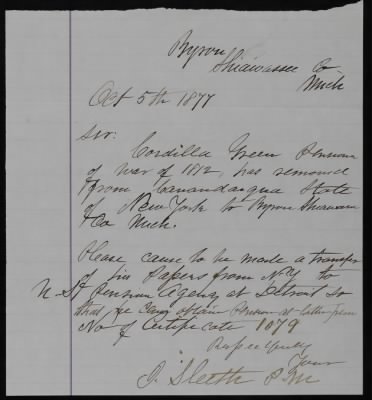 Byron
Shiawassee Co
Mich
Oct 5th 1877
Sir:
Cordilla Green Pensioner
of War of 1812, has removed
from Canandaqua State
of New York to Byron Shiawassee
Co Mich.
Please cause to be made a transfer
of his papers from N.Y. to
U. S. Pension Agency at Detroit so
that he can obtain Pension at latter place
No of Certificate 1079
Respectfully
Yours
J. Sleeth P.M